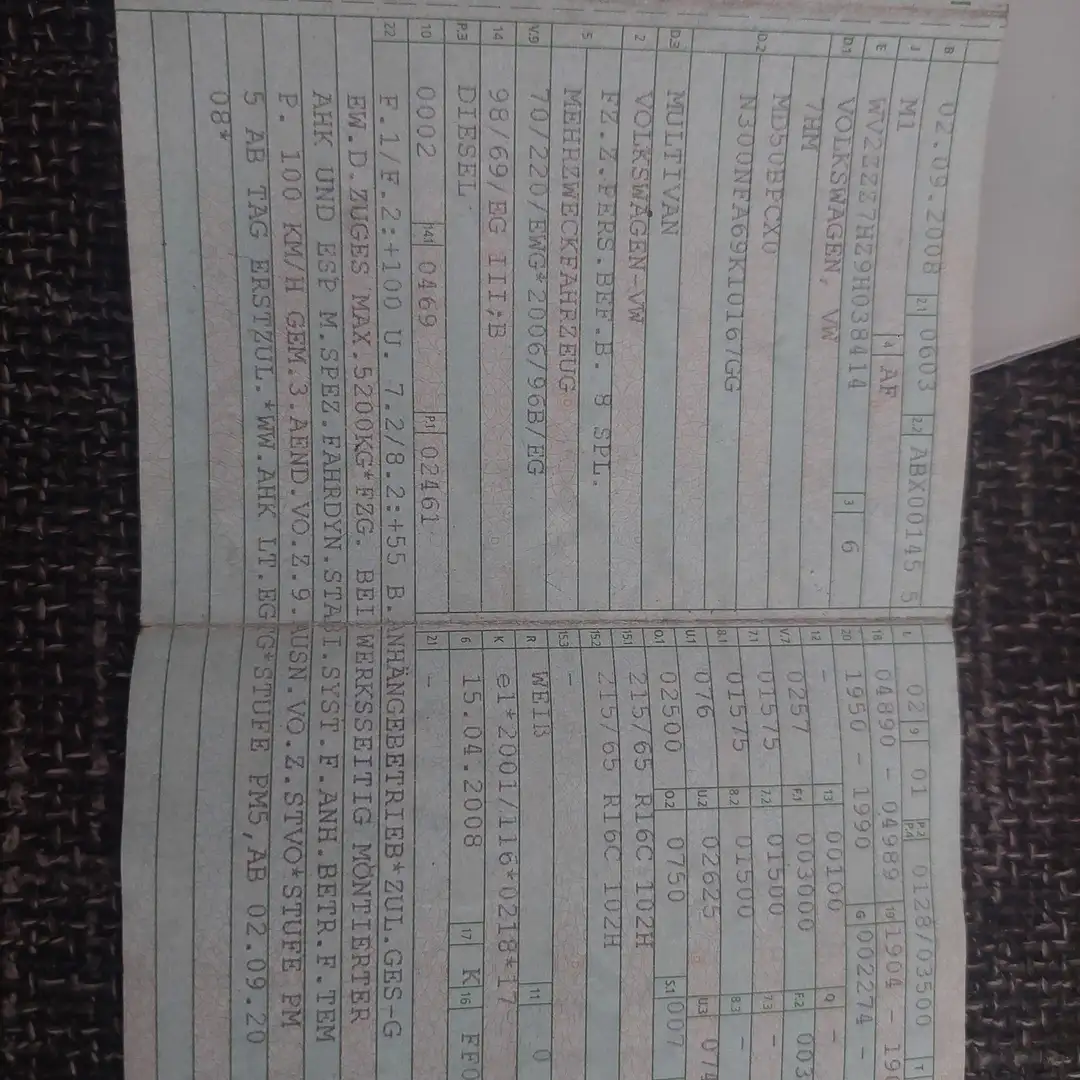 B 02.09.2008 2.1 0603 2.2 ABX00145 5
J M1 4 AF
E WV2ZZZ7HZ9H038414 3 6
D.1 VOLKSWAGEN, VW
7HM
D.2 MD50BFCX0
N300NFA69KI0167GG
D.3 MULTIVAN
2 VOLKSWAGEN-VW
5 FZ.Z.PERS.BEF.B. 8 SPL.
MEHRZWECKFAHRZEUG
V.9 70/220/EWG*2006/96B/EG
14 98/69/EG III;B
P.3 DIESEL
10 0002 14.1 0469 P.1 02461
L 02 9 01 P.2 P.4 0128/03500 T
18 04890 - 04989 19 1904 - 19
20 1950 - 1990 G 002274 -
12 - 13 00100 Q -
V.7 0257 F.1 003000 F.2 003
7.1 01575 7.2 01500 7.3 -
8.1 01575 8.2 01500 8.3 -
U.1 076 U.2 02625 U.3 074
O.1 02500 O.2 0750 S.1 007
15.1 215/65 R16C 102H
15.2 215/65 R16C 102H
15.3 -
R WEIß 11 0
K e1*2001/116*0218*17
6 15.04.2008 17 K 16 FF0
21 -
22 F.1/F.2:+100 U. 7.2/8.2:+55 B.ANHÄNGEBETRIEB*ZUL.GES-G
EW.D.ZUGES MAX.5200KG*FZG. BEI WERKSSEITIG MONTIERTER
AHK UND ESP M.SPEZ.FAHRDYN.STABI.SYST.F.ANH.BETR.F.TEM
P. 100 KM/H GEM.3.AEND.VO.Z.9.AUSN.VO.Z.STVO*STUFE PM
5 AB TAG ERSTZUL.*WW.AHK LT.EG*STUFE PM5,AB 02.09.20
08*